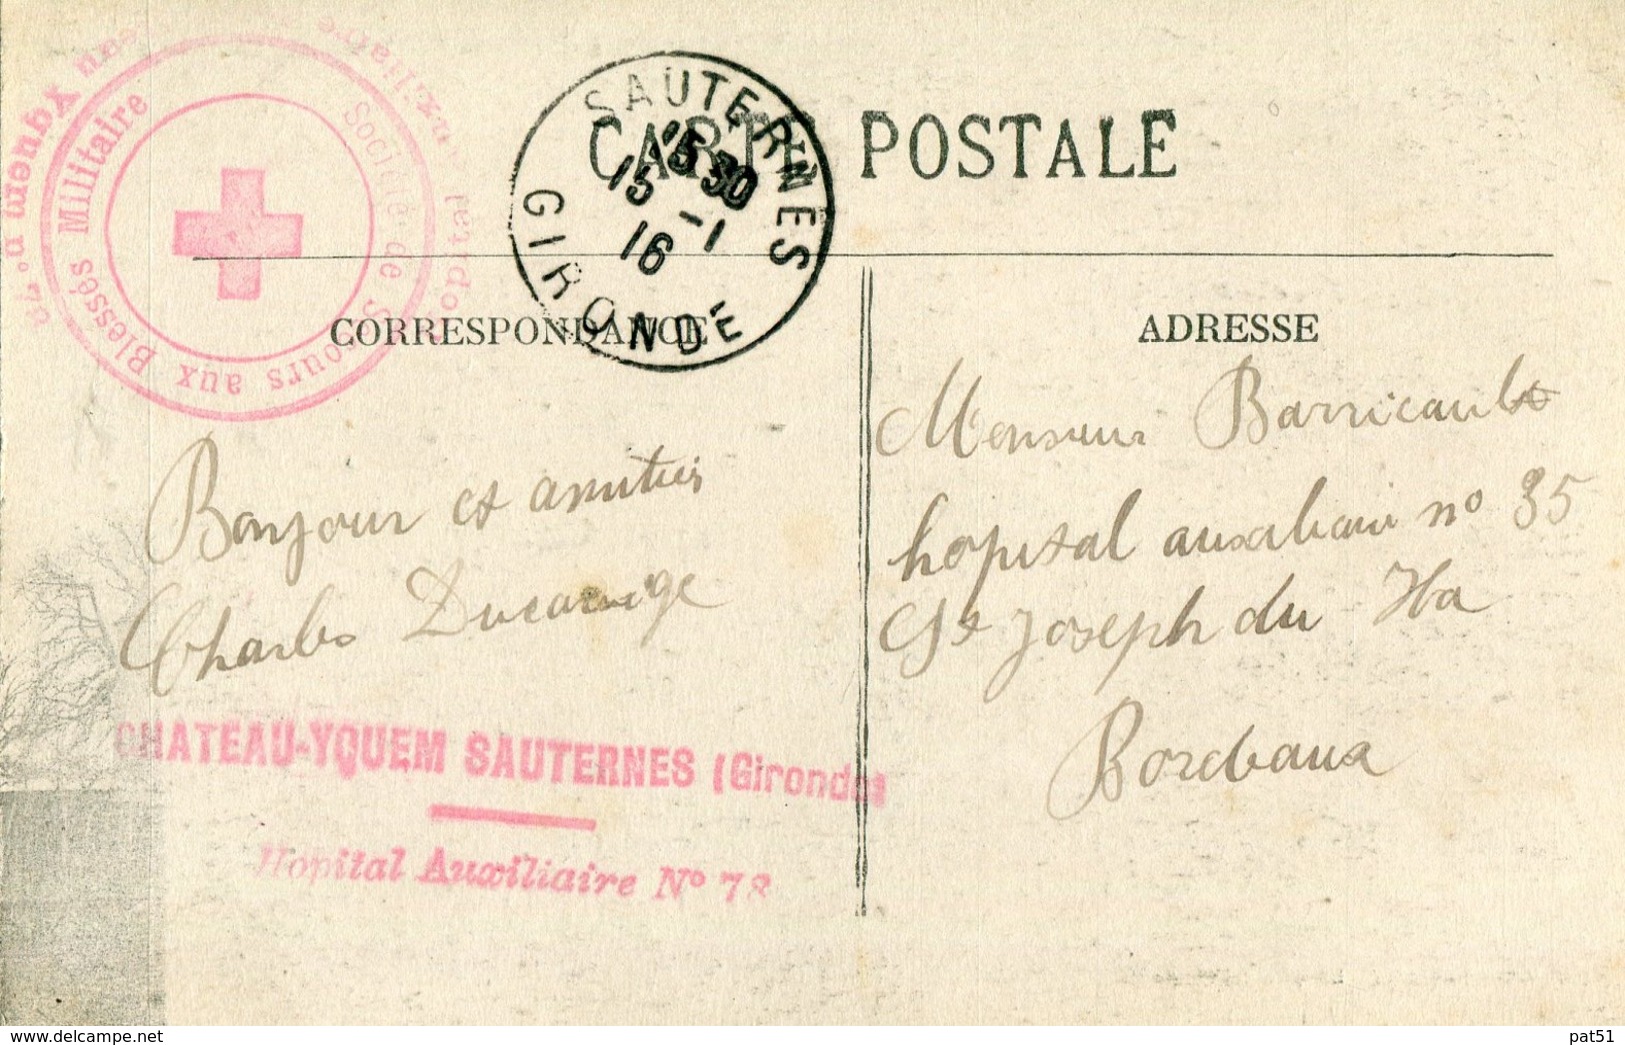 CARTE POSTALE
SAUTERNES
15 30
15 -1
16
GIRONDE
Société de Secours aux Blessés Militaire
Yquem n° 78
CORRESPONDANCE
ADRESSE
Bonjour et amitiés
Charles
CHATEAU-YQUEM SAUTERNES (Gironde)
Hôpital Auxiliaire N° 78
Monsieur Barricault
hopital auxiliaire n° 35
St Joseph du Ha
Bordeaux
pat51